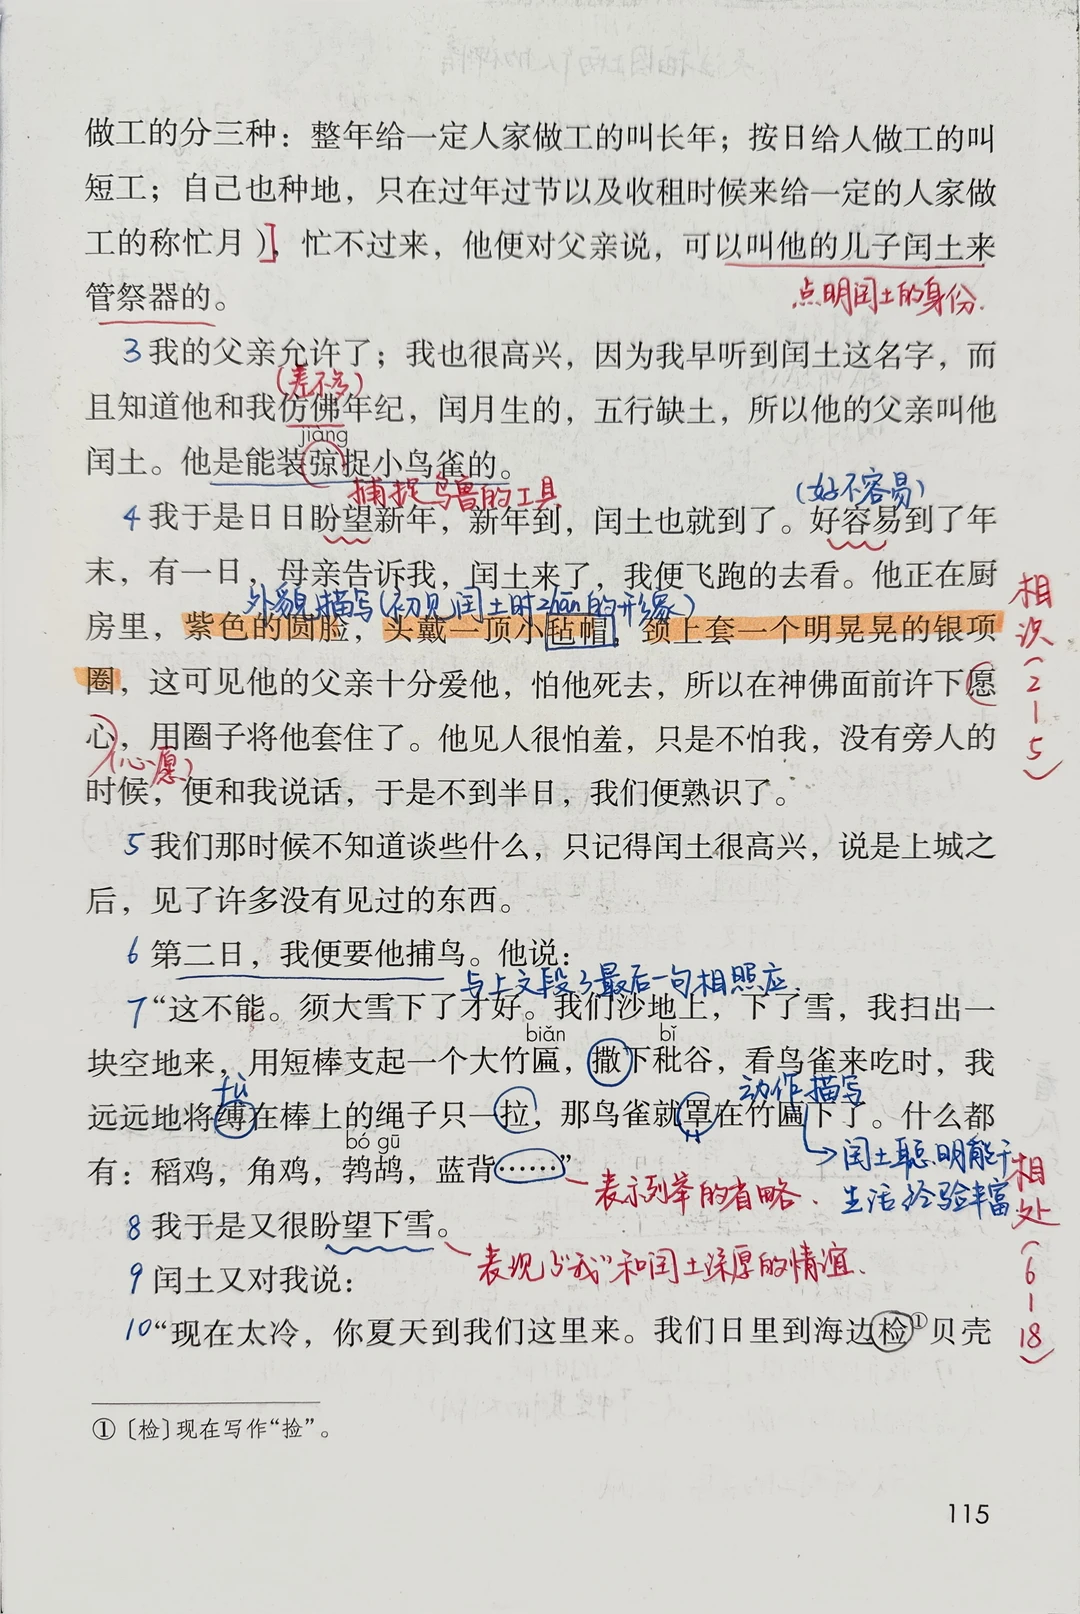 做工的分三种：整年给一定人家做工的叫长年；按日给人做工的叫
短工；自己也种地，只在过年过节以及收租时候来给一定的人家做
工的称忙月）]，忙不过来，他便对父亲说，可以叫他的儿子闰土来
管祭器的。
点明闰土的身份.
3 我的父亲允许了；我也很高兴，因为我早听到闰土这名字，而
(差不多)
且知道他和我仿佛年纪，闰月生的，五行缺土，所以他的父亲叫他
jiàng
闰土。他是能装弶捉小鸟雀的。
捕捉鸟兽的工具
(好不容易)
4 我于是日日盼望新年，新年到，闰土也就到了。好容易到了年
末，有一日，母亲告诉我，闰土来了，我便飞跑的去看。他正在厨
外貌描写(初见闰土时zhān的形象)
房里，紫色的圆脸，头戴一顶小毡帽，颈上套一个明晃晃的银项
圈，这可见他的父亲十分爱他，怕他死去，所以在神佛面前许下愿
心，用圈子将他套住了。他见人很怕羞，只是不怕我，没有旁人的
(心愿)
时候，便和我说话，于是不到半日，我们便熟识了。
相识(2-5)
5 我们那时候不知道谈些什么，只记得闰土很高兴，说是上城之
后，见了许多没有见过的东西。
6 第二日，我便要他捕鸟。他说：
与上文段3最后一句相照应.
7 “这不能。须大雪下了才好。我们沙地上，下了雪，我扫出一
biǎn bǐ
块空地来，用短棒支起一个大竹匾，撒下秕谷，看鸟雀来吃时，我
fù
动作描写
远远地将缚在棒上的绳子只一拉，那鸟雀就罩在竹匾下了。什么都
bó gū
有：稻鸡，角鸡，鹁鸪，蓝背……”
表示列举的省略.
闰土聪明能干
生活经验丰富
8 我于是又很盼望下雪。
表现了“我”和闰土深厚的情谊.
9 闰土又对我说：
10 “现在太冷，你夏天到我们这里来。我们日里到海边检①贝壳
相处(6-18)
①〔检〕现在写作“捡”。
115